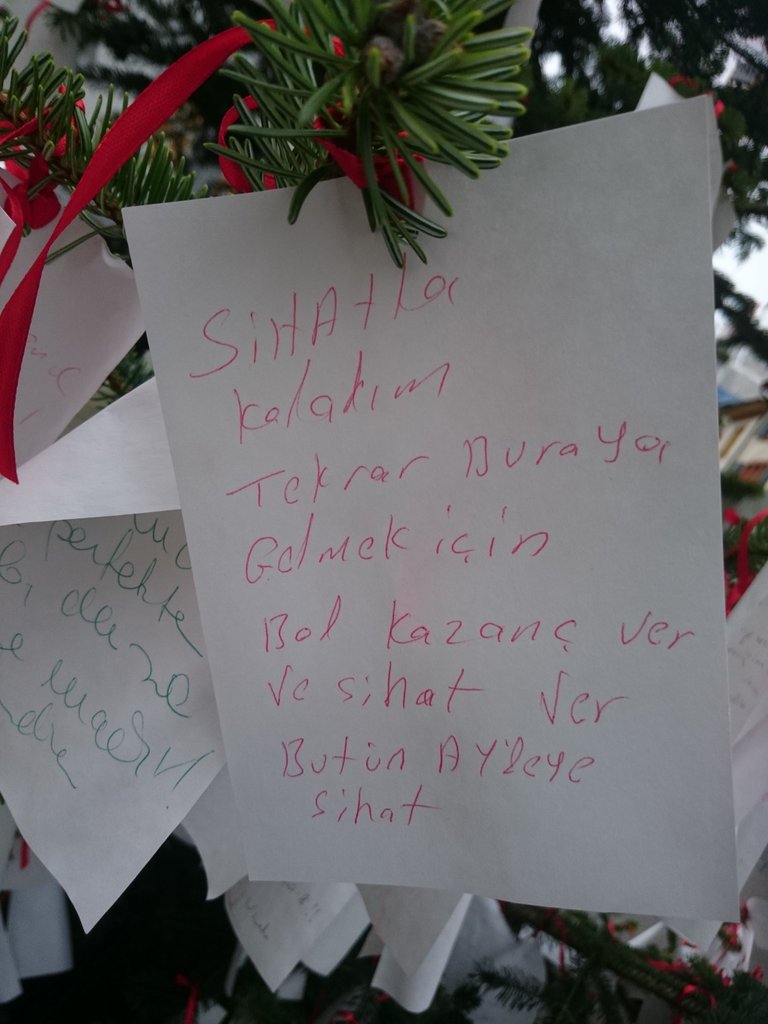 SiHAtla
kaladım
Tekrar Buraya
Gelmek için
Bol kazanç ver
ve sihat ver
Butün AYileye
sihat
perfekte